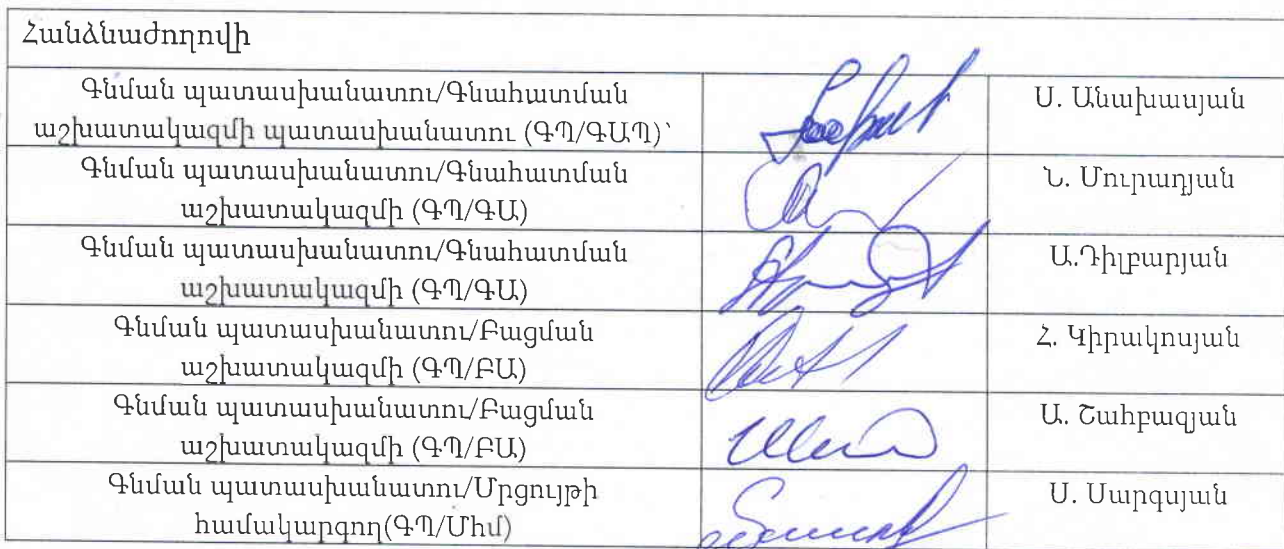 Հանձնաժողովի
Գնման պատասխանատու/Գնահատման
աշխատակազմի պատասխանատու (ԳՊ/ԳԱՊ)՝
Ս. Անախասյան
Գնման պատասխանատու/Գնահատման
աշխատակազմի (ԳՊ/ԳԱ)
Ն. Մուրադյան
Գնման պատասխանատու/Գնահատման
աշխատակազմի (ԳՊ/ԳԱ)
Ա.Դիլբարյան
Գնման պատասխանատու/Բացման
աշխատակազմի (ԳՊ/ԲԱ)
Հ. Կիրակոսյան
Գնման պատասխանատու/Բացման
աշխատակազմի (ԳՊ/ԲԱ)
Ա. Շահբազյան
Գնման պատասխանատու/Մրցույթի
համակարգող(ԳՊ/Մհմ)
Ս. Սարգսյան